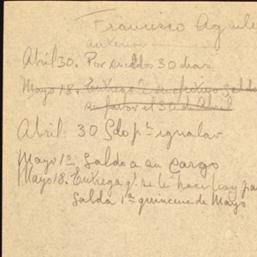 Francisco Aguile
anterior
Abril 30. Por sueldos 30 dias
Mayo 18. Entrega
su favor el 30 de Abril
Abril 30 Sdo pª igualar
Mayo 1º Saldo a su Cargo
Mayo 18. Entrega q. se le hace hoy pa
Salda 1ª quincena de Mayo